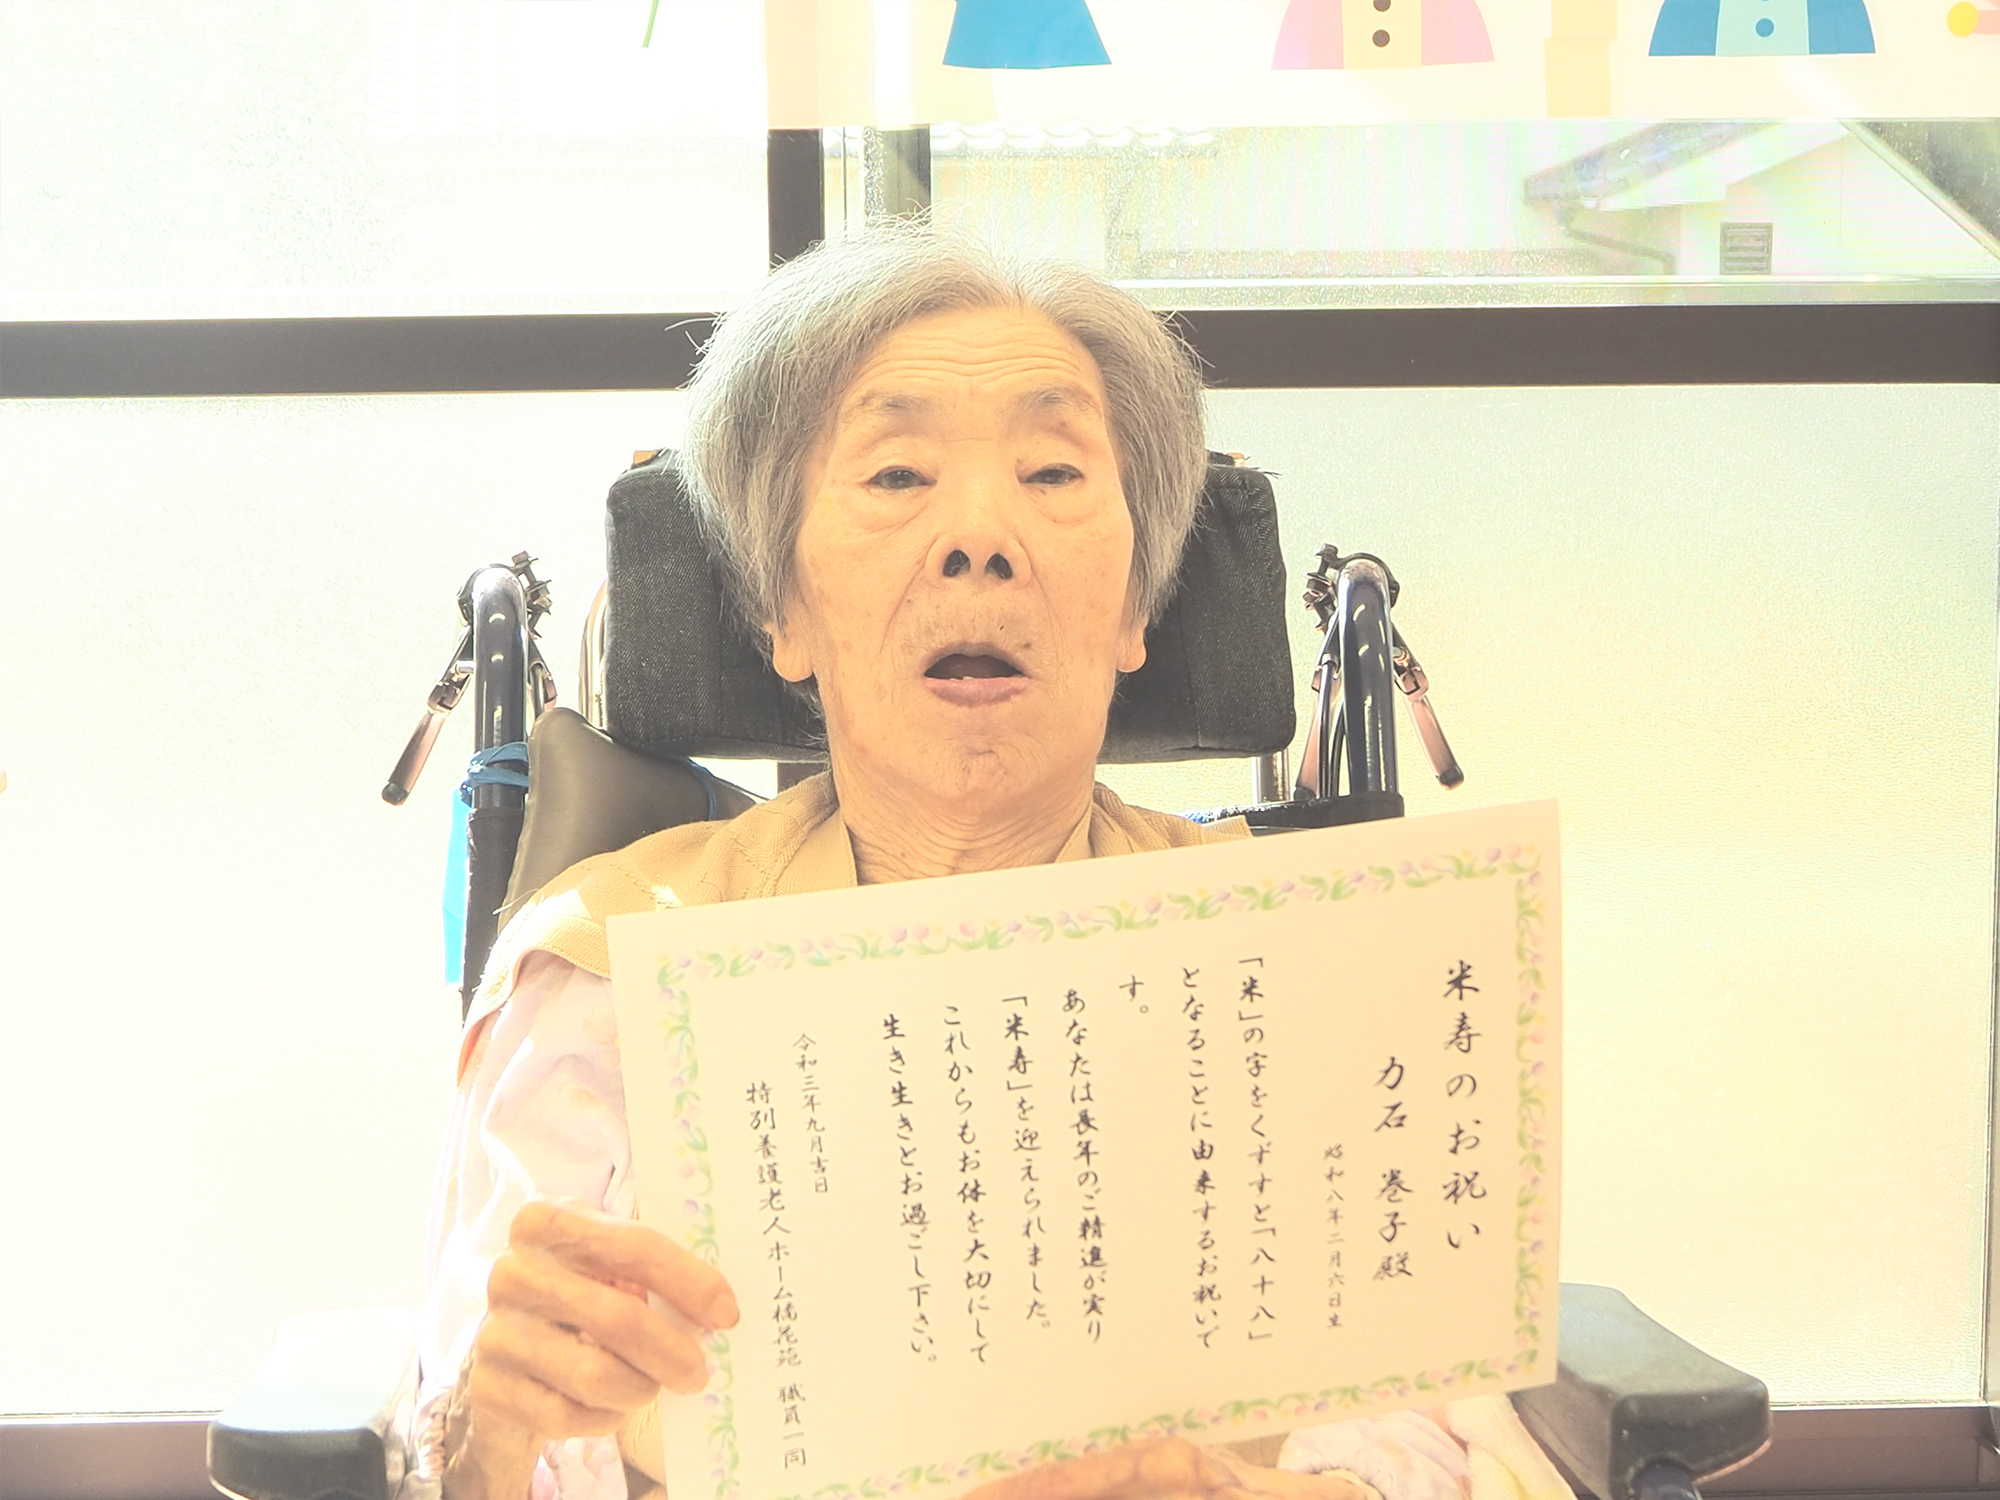 米寿のお祝い
力石 巻子殿
昭和八年二月六日生
「米」の字をくずすと「八十八」
となることに由来するお祝いで
す。
あなたは長年のご精進が実り
「米寿」を迎えられました。
これからもお体を大切にして
生き生きとお過ごし下さい。
令和三年九月吉日
特別養護老人ホーム橘花苑 職員一同